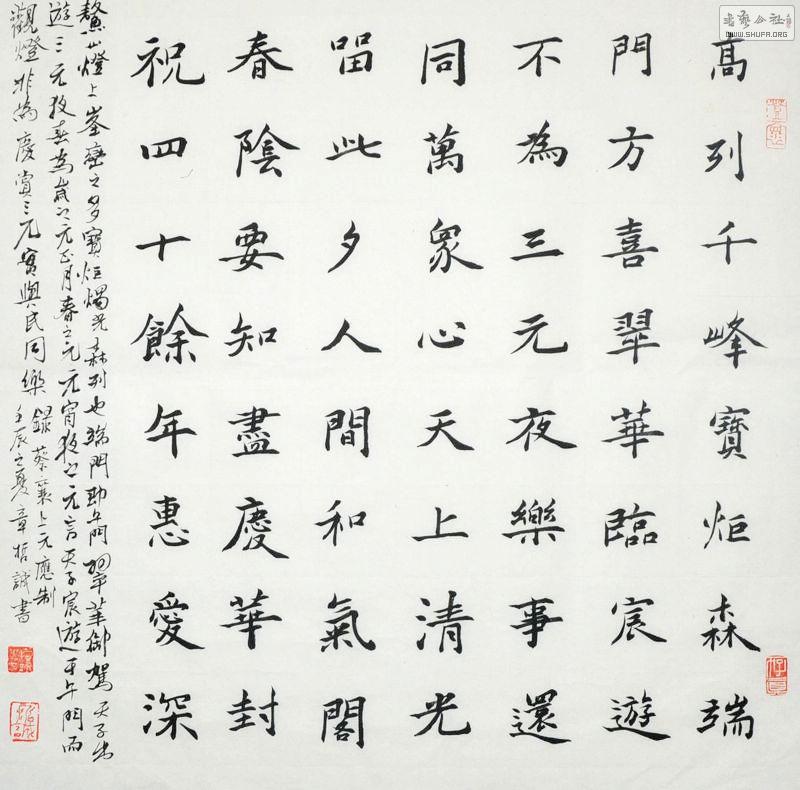 高列千峰寶炬森端
門方喜翠華臨宸遊
不為三元夜樂事還
同萬眾心天上清光
畱此夕人間和氣閣
春陰要知盡慶華封
祝四十餘年惠愛深
鰲山燈上峯巒之多寶炬燭光森列也端門即午門翠華御駕天子出
遊三元夜燕為歲之元正月春之元元宵夜之元言天子宸遊至午門而
觀燈非為慶賞三元實與民同樂錄蔡襄上元應制
壬辰之夏章哲誠書
書藝公社
WWW.SHUFA.ORG